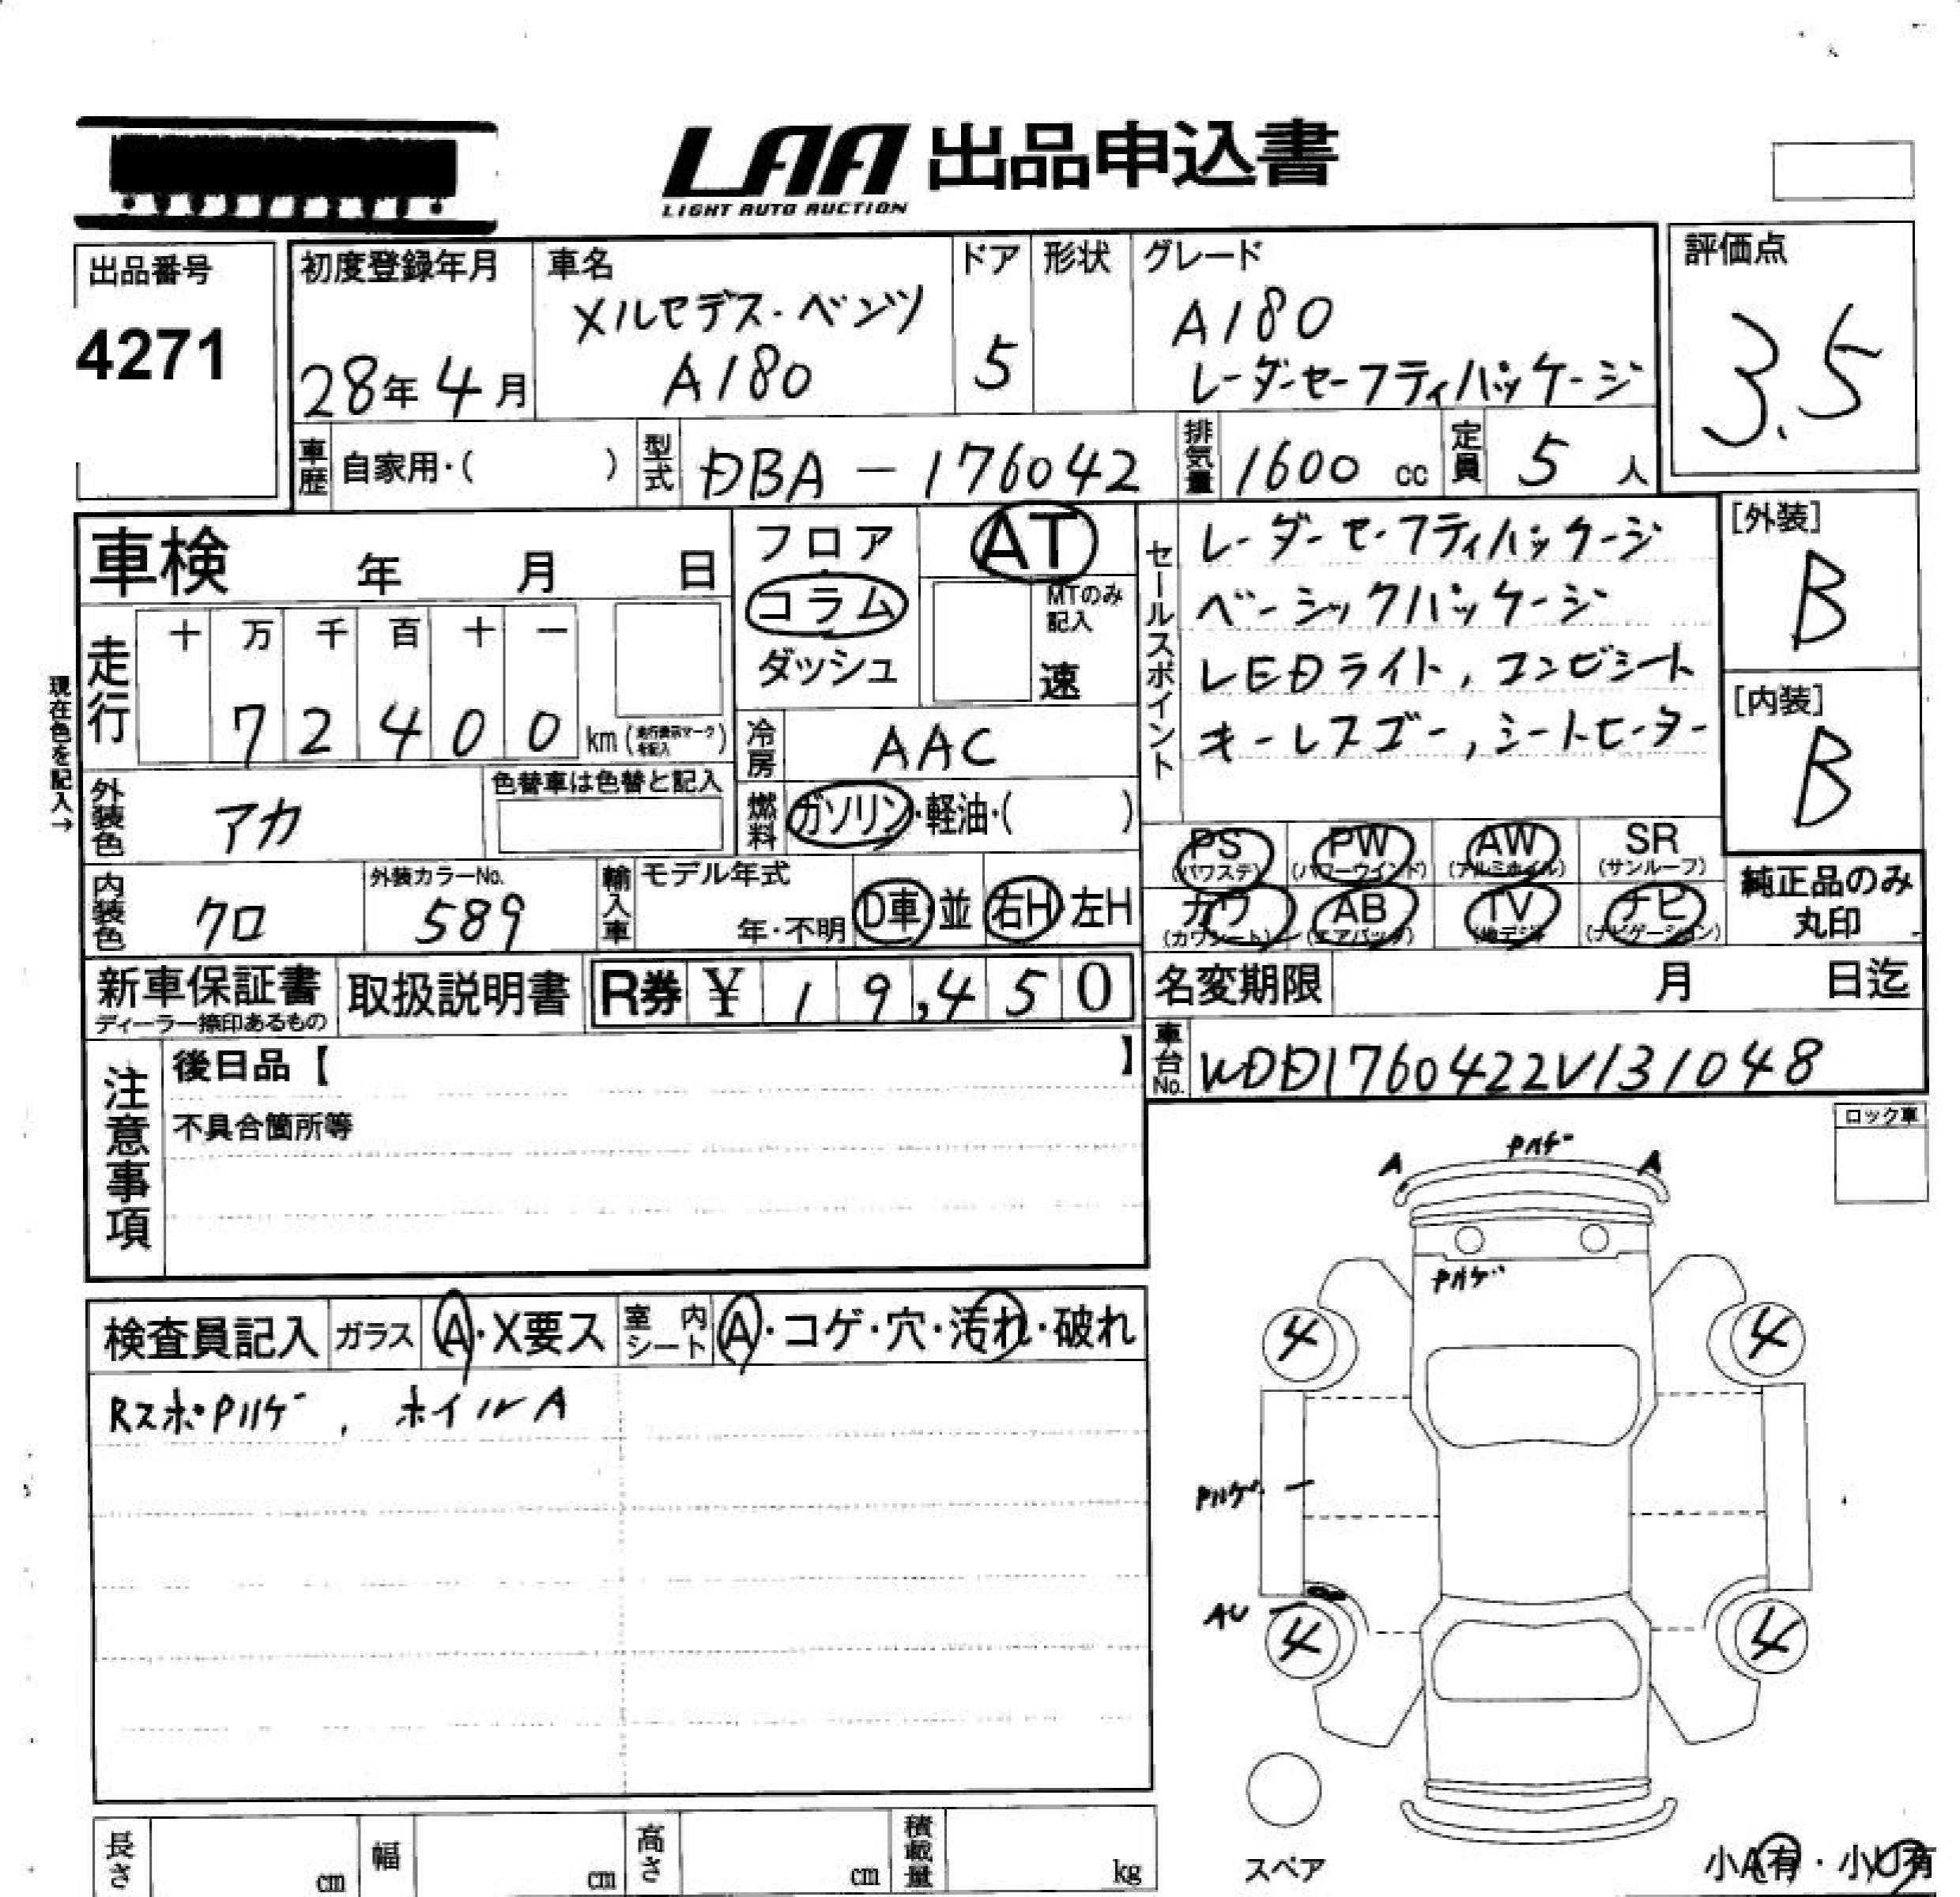 LAA 出品申込書
LIGHT AUTO AUCTION
出品番号
4271
初度登録年月
28年4月
車名
メルセデス・ベンツ
A180
ドア
5
形状
グレード
A180
レーダーセーフティパッケージ
評価点
3.5
車歴
自家用・( )
型式
DBA-176042
排気量
1600 cc
定員
5 人
車検 年 月 日
フロア
コラム
ダッシュ
AT
MTのみ
記入
速
セールスポイント
レーダーセーフティパッケージ
ベーシックパッケージ
LEDライト, コンビシート
キーレスゴー, シートヒーター
[外装]
B
[内装]
B
現在色を記入→
走行
十 万 千 百 十 一
7 2 4 0 0 km
冷房
AAC
外装色
アカ
色替車は色替と記入
燃料
ガソリン・軽油・( )
PS (パワステ)
PW (パワーウインド)
AW (アルミホイル)
SR (サンルーフ)
カワ (カワシート)
AB (エアバック)
TV (地デジ)
ナビ (ナビゲーション)
純正品のみ
丸印
内装色
クロ
外装カラーNo.
589
輸入車
モデル年式
年・不明
D車 並
右H 左H
新車保証書
ディーラー捺印あるもの
取扱説明書
R券 ¥ 19,450
名変期限 月 日迄
車台No.
WDD1760422V131048
注意事項
後日品【 】
不具合箇所等
ロック車
検査員記入
ガラス
A・X要ス
室内シート
A・コゲ・穴・汚れ・破れ
RスポPハゲ, ホイルA
A
Pハゲ
A
Pハゲ
4
4
Pハゲ
AU
4
4
スペア
小A有・小U有
長さ cm
幅 cm
高さ cm
積載量 kg